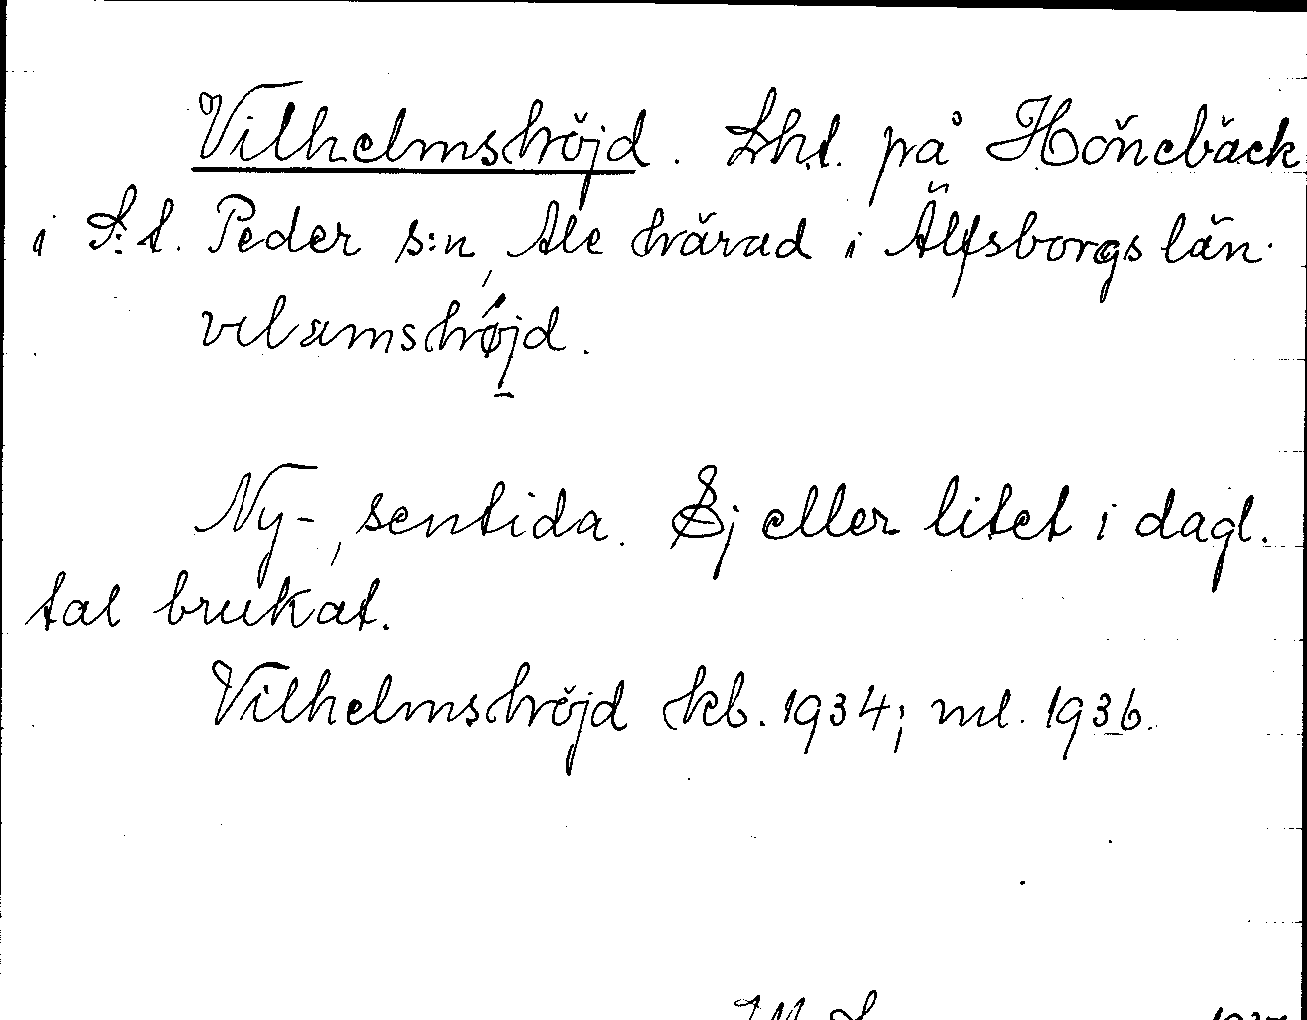 Vilhelmshöjd. Lht. på Hönebäck
i S:t. Peder s:n, Ale härad i Älfsborgs län.
vilamshøjd.
Ny-, sentida. Ej eller litet i dagl.
tal brukat.
Vilhelmshöjd kb. 1934; ml. 1936.